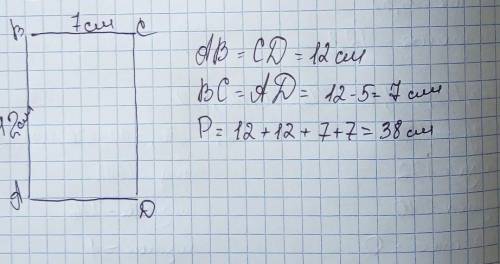 7см
B C
12см
A D
AB = CD = 12 см
BC = AD = 12 - 5 = 7 см
P = 12 + 12 + 7 + 7 = 38 см